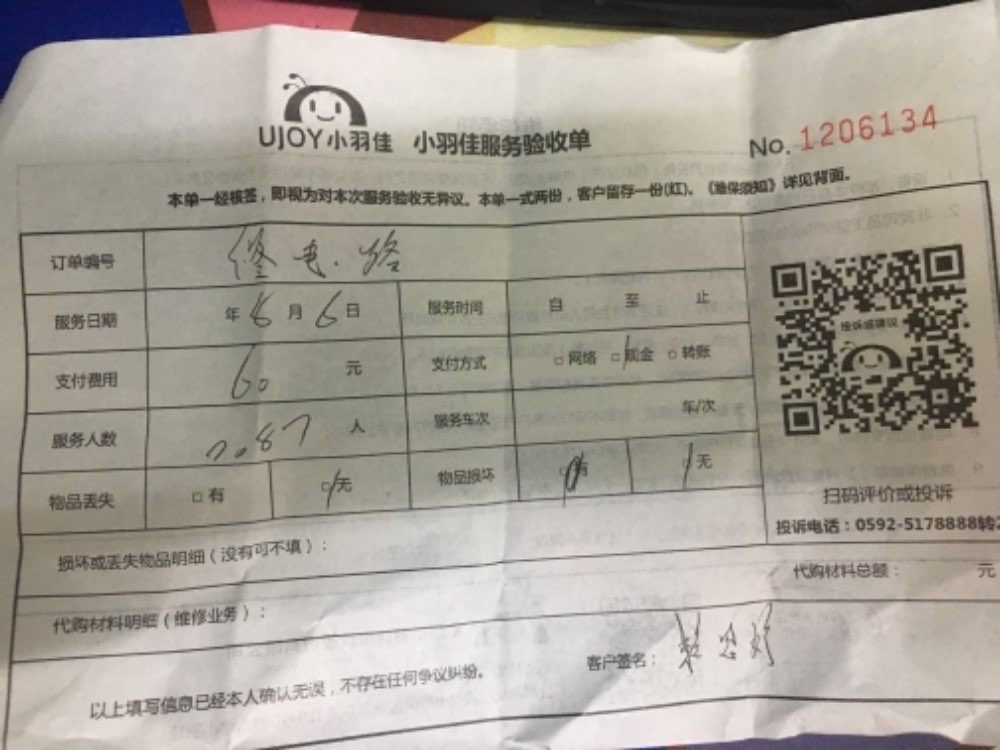 UJOY小羽佳 小羽佳服务验收单
No. 1206134
本单一经核签，即视为对本次服务验收无异议。本单一式两份，客户留存一份(红)。《维保须知》详见背面。
订单编号 修电.路
服务日期 年 8 月 6 日 服务时间 自 至 止
支付费用 60 元 支付方式 □网络 □现金 □转账
服务人数 2087 人 服务车次 车/次
物品丢失 □有 □无 物品损坏 □有 □无
投诉或建议
扫码评价或投诉
投诉电话：0592-5178888转2
损坏或丢失物品明细（没有可不填）：
代购材料明细（维修业务）： 代购材料总额： 元
以上填写信息已经本人确认无误，不存在任何争议纠纷。 客户签名：